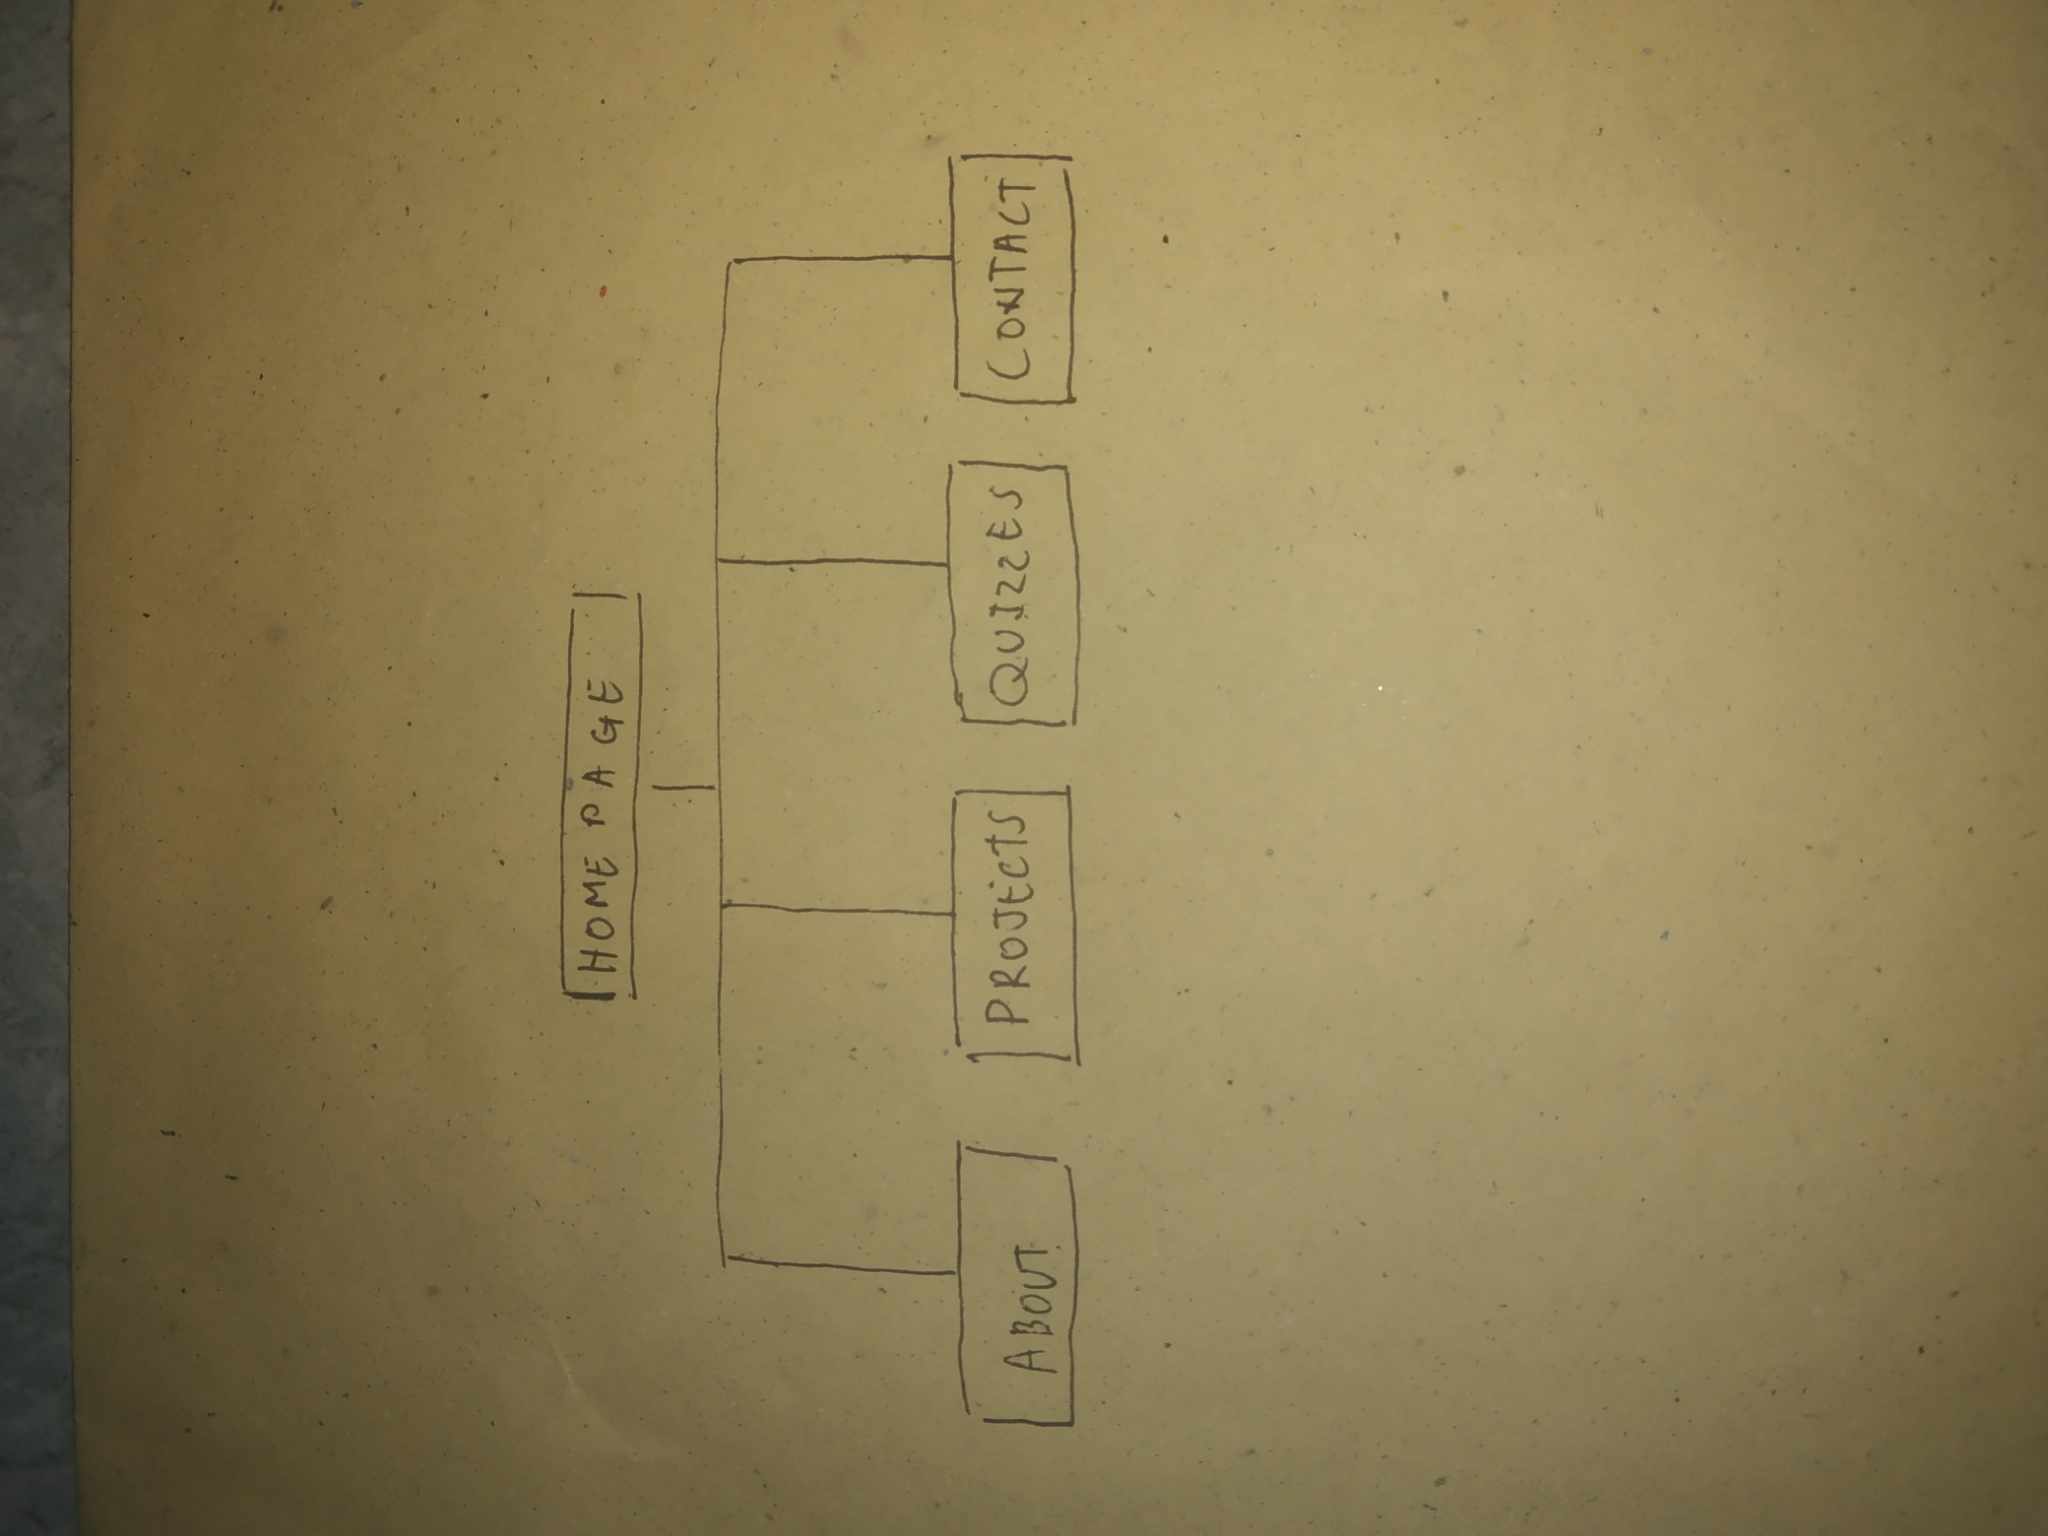 HOME PAGE
ABOUT
PROJECTS
QUIZZES
CONTACT